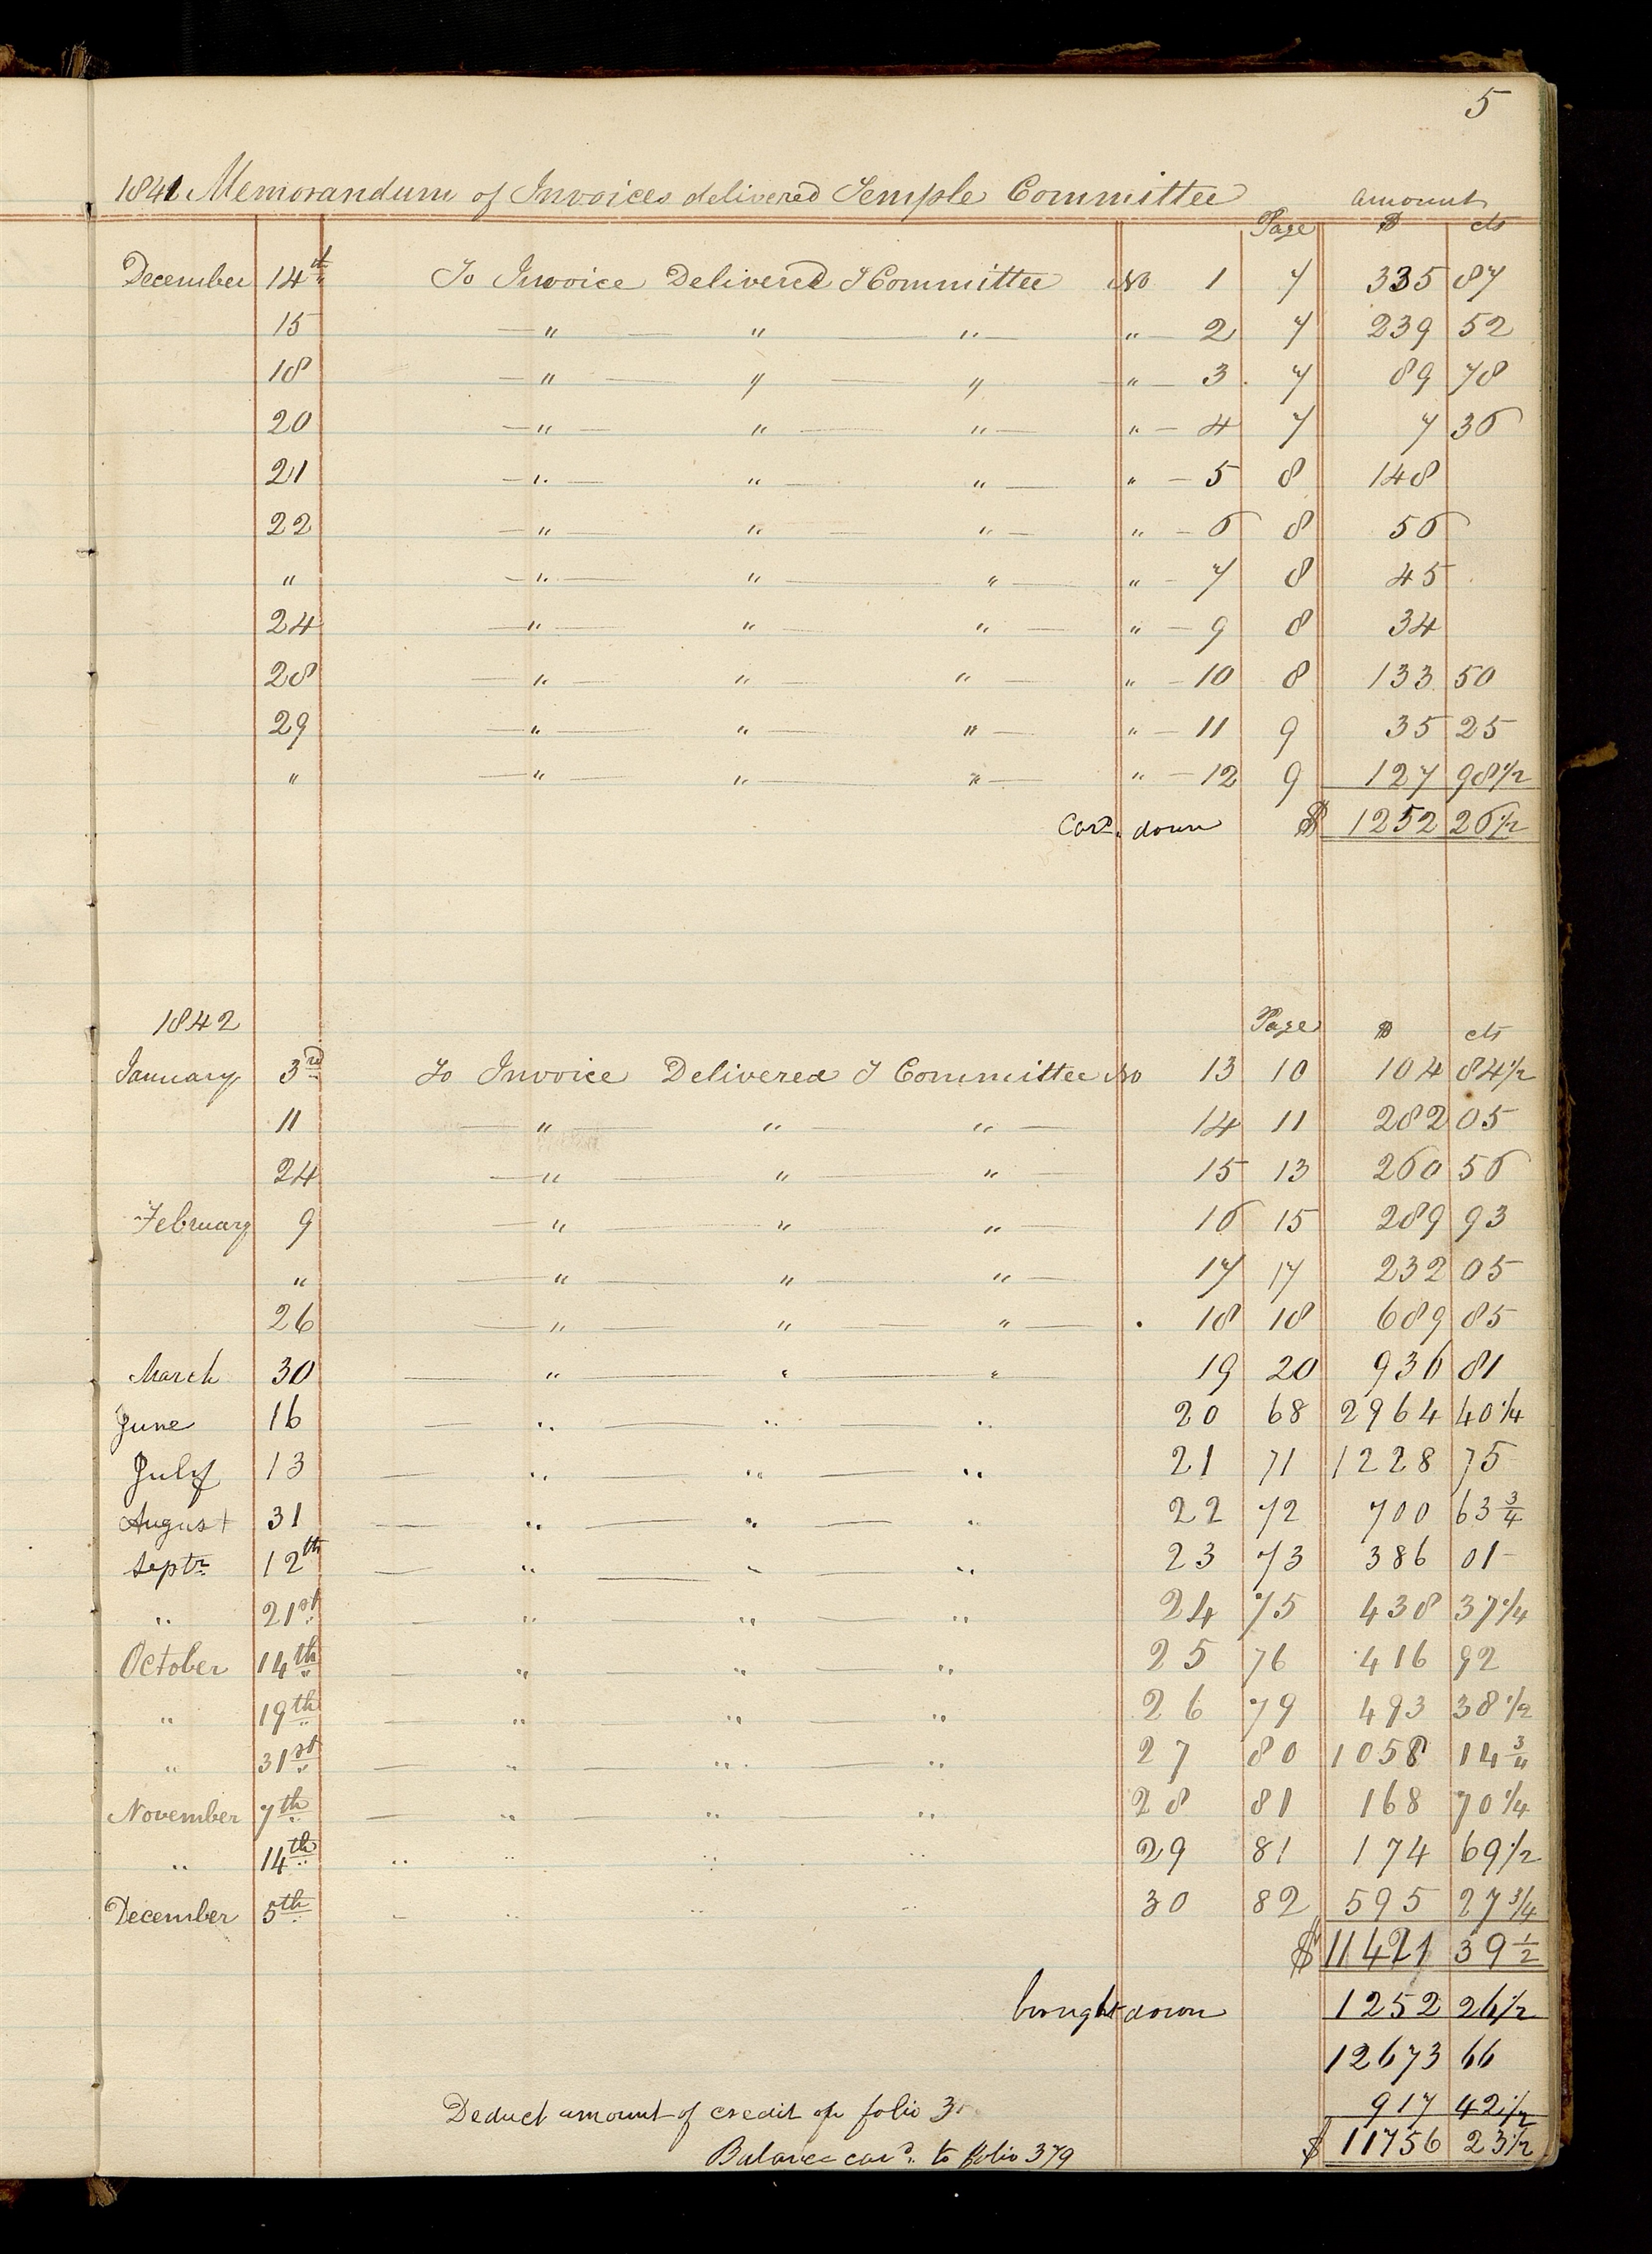 5
1841 Memorandum of Invoices delivered Temple Committee amount
Page $ cts
December 14th To Invoice Delivered T Committee No 1 7 335 87
15 — " — " — " — " — 2 7 239 52
18 — " — " — " — " — 3 7 89 78
20 — " — " — " — " — 4 7 7 36
21 — " — " — " — " — 5 8 148
22 — " — " — " — " — 6 8 56
" — " — " — " — " — 7 8 45
24 — " — " — " — " — 9 8 34
28 — " — " — " — " — 10 8 133 50
29 — " — " — " — " — 11 9 35 25
" — " — " — " — " — 12 9 127 98 1/2
Card. down $ 1252 26 1/2
1842 Page $ cts
January 3rd To Invoice Delivered T Committee No 13 10 104 84 1/2
11 — " — " — " — 14 11 282 05
24 — " — " — " — 15 13 260 56
February 9 — " — " — " — 16 15 289 93
" — " — " — " — 17 17 232 05
26 — " — " — " — 18 18 689 85
March 30 — " — " — " 19 20 936 81
June 16 — " — " — " 20 68 2964 40 1/4
July 13 — " — " — " 21 71 1228 75
August 31 — " — " — " 22 72 700 63 3/4
Septr. 12th — " — " — " 23 73 386 01 —
" 21st — " — " — " 24 75 438 37 1/4
October 14th — " — " — " 25 76 416 92
" 19th — " — " — " 26 79 493 38 1/2
" 31st — " — " — " 27 80 1058 14 3/4
November 7th — " — " — " 28 81 168 70 1/4
" 14th " " " " 29 81 174 69 1/2
December 5th — " " " 30 82 595 27 3/4
$ 11421 39 1/2
brought down 1252 26 1/2
12673 66
Deduct amount of credit on folio 917 42 1/2
Balance card. to folio 379 $ 11756 23 1/2